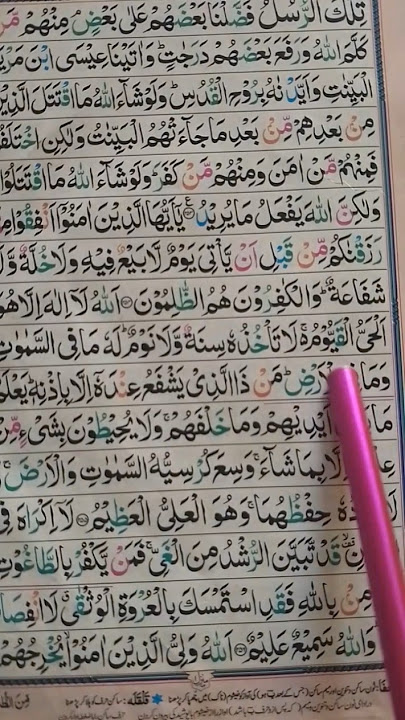 تِلْكَ الرُّسُلُ فَضَّلْنَا بَعْضَهُمْ عَلٰى بَعْضٍ مِنْهُمْ مَّنْ
كَلَّمَ اللّٰهُ وَرَفَعَ بَعْضَهُمْ دَرَجٰتٍ وَاٰتَيْنَا عِيْسَى ابْنَ مَرْيَ
الْبَيِّنٰتِ وَاَيَّدْنٰهُ بِرُوْحِ الْقُدُسِ وَلَوْشَآءَ اللّٰهُ مَا اقْتَتَلَ الَّذِيْنَ
مِنْ بَعْدِهِمْ مِّنْ بَعْدِ مَاجَآءَتْهُمُ الْبَيِّنٰتُ وَلٰكِنِ اخْتَلَفُ
فَمِنْهُمْ مَّنْ اٰمَنَ وَمِنْهُمْ مَّنْ كَفَرَ وَلَوْشَآءَ اللّٰهُ مَا اقْتَتَلُوْا
وَلٰكِنَّ اللّٰهَ يَفْعَلُ مَايُرِيْدُ ۝ يٰۤاَيُّهَا الَّذِيْنَ اٰمَنُوْۤا اَنْفِقُوْا مِ
رَزَقْنٰكُمْ مِّنْ قَبْلِ اَنْ يَّاْتِيَ يَوْمٌ لَّا بَيْعٌ فِيْهِ وَلَا خُلَّةٌ وَّلَا
شَفَاعَةٌ وَالْكٰفِرُوْنَ هُمُ الظّٰلِمُوْنَ ۝ اَللّٰهُ لَاۤ اِلٰهَ اِلَّا هُوَ
اَلْحَيُّ الْقَيُّوْمُ لَا تَاْخُذُهٗ سِنَةٌ وَّلَا نَوْمٌ لَهٗ مَا فِى السَّمٰوٰتِ
وَمَا رْضِ مَنْ ذَا الَّذِيْ يَشْفَعُ عِنْدَهٗۤ اِلَّا بِاِذْنِهٖ يَعْلَمُ
مَا اَيْدِيْهِمْ وَمَا خَلْفَهُمْ وَلَا يُحِيْطُوْنَ بِشَيْءٍ مِّنْ
عِلْ اِلَّا بِمَا شَآءَ وَسِعَ كُرْسِيُّهُ السَّمٰوٰتِ وَالْاَرْضَ
دُهٗ حِفْظُهُمَا وَهُوَ الْعَلِيُّ الْعَظِيْمُ ۝ لَاۤ اِكْرَاهَ فِى
نِ قَدْ تَّبَيَّنَ الرُّشْدُ مِنَ الْغَيِّ فَمَنْ يَّكْفُرْ بِالطَّاغُوْتِ
مِنْ بِاللّٰهِ فَقَدِ اسْتَمْسَكَ بِالْعُرْوَةِ الْوُثْقٰى لَا انْفِصَا
وَاللّٰهُ سَمِيْعٌ عَلِيْمٌ ۝ اَللّٰهُ وَلِيُّ الَّذِيْنَ اٰمَنُوْا يُخْرِجُهُمْ